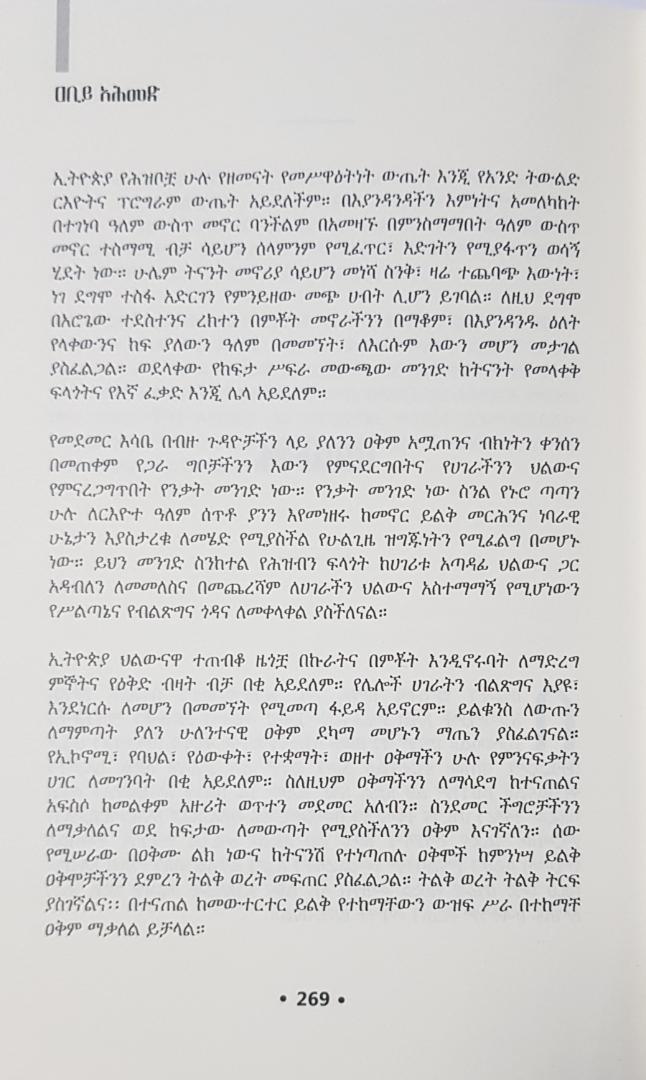 ዐቢይ አሕመድ
ኢትዮጵያ የሕዝቦቿ ሁሉ የዘመናት የመሥዋዕትነት ውጤት እንጂ የአንድ ትውልድ
ርእዮትና ፕሮግራም ውጤት አይደለችም። በእያንዳንዳችን እምነትና አመለካከት
በተገነባ ዓለም ውስጥ መኖር ባንችልም በአመዛኙ በምንስማማበት ዓለም ውስጥ
መኖር ተስማሚ ብቻ ሳይሆን ሰላምንም የሚፈጥር፣ እድገትን የሚያፋጥን ወሳኝ
ሂደት ነው። ሁሌም ትናንት መኖሪያ ሳይሆን መነሻ ስንቅ፣ ዛሬ ተጨባጭ እውነት፣
ነገ ደግሞ ተስፋ አድርገን የምንይዘው መጭ ሀብት ሊሆን ይገባል። ለዚህ ደግሞ
በአሮጌው ተደስተንና ረክተን በምቾት መኖራችንን በማቆም፣ በእያንዳንዱ ዕለት
የላቀውንና ከፍ ያለውን ዓለም በመመኘት፣ ለእርሱም እውን መሆን መታገል
ያስፈልጋል። ወደላቀው የከፍታ ሥፍራ መውጫው መንገድ ከትናንት የመላቀቅ
ፍላጎትና የእኛ ፈቃድ እንጂ ሌላ አይደለም።
የመደመር እሳቤ በብዙ ጉዳዮቻችን ላይ ያለንን ዐቅም አሟጠንና ብክነትን ቀንሰን
በመጠቀም የጋራ ግቦቻችንን እውን የምናደርግበትና የሀገራችንን ህልውና
የምናረጋግጥበት የንቃት መንገድ ነው። የንቃት መንገድ ነው ስንል የኑሮ ጣጣን
ሁሉ ለርእዮተ ዓለም ሰጥቶ ያንን እየመነዘሩ ከመኖር ይልቅ መርሕንና ነባራዊ
ሁኔታን እያስታረቁ ለመሄድ የሚያስችል የሁልጊዜ ዝግጁነትን የሚፈልግ በመሆኑ
ነው። ይህን መንገድ ስንከተል የሕዝብን ፍላጎት ከሀገሪቱ አጣዳፊ ህልውና ጋር
አዳብለን ለመመለስና በመጨረሻም ለሀገራችን ህልውና አስተማማኝ የሚሆነውን
የሥልጣኔና የብልጽግና ጎዳና ለመቀላቀል ያስችለናል።
ኢትዮጵያ ህልውናዋ ተጠብቆ ዜጎቿ በኩራትና በምቾት እንዲኖሩባት ለማድረግ
ምኞትና የዕቅድ ብዛት ብቻ በቂ አይደለም። የሌሎች ሀገራትን ብልጽግና እያዩ፣
እንደነርሱ ለመሆን በመመኘት የሚመጣ ፋይዳ አይኖርም። ይልቁንስ ለውጡን
ለማምጣት ያለን ሁለንተናዊ ዐቅም ደካማ መሆኑን ማጤን ያስፈልገናል።
የኢኮኖሚ፣ የባህል፣ የዕውቀት፣ የተቋማት፣ ወዘተ ዐቅማችን ሁሉ የምንናፍቃትን
ሀገር ለመገንባት በቂ አይደለም። ስለዚህም ዐቅማችንን ለማሳደግ ከተናጠልና
አፍስሶ ከመልቀም አዙሪት ወጥተን መደመር አለብን። ስንደመር ችግሮቻችንን
ለማቃለልና ወደ ከፍታው ለመውጣት የሚያስችለንን ዐቅም እናገኛለን። ሰው
የሚሠራው በዐቅሙ ልክ ነውና ከትናንሽ የተነጣጠሉ ዐቅሞች ከምንነሣ ይልቅ
ዐቅሞቻችንን ደምረን ትልቅ ወረት መፍጠር ያስፈልጋል። ትልቅ ወረት ትልቅ ትርፍ
ያስገኛልና፡፡ በተናጠል ከመውተርተር ይልቅ የተከማቸውን ውዝፍ ሥራ በተከማቸ
ዐቅም ማቃለል ይቻላል።
• 269 •